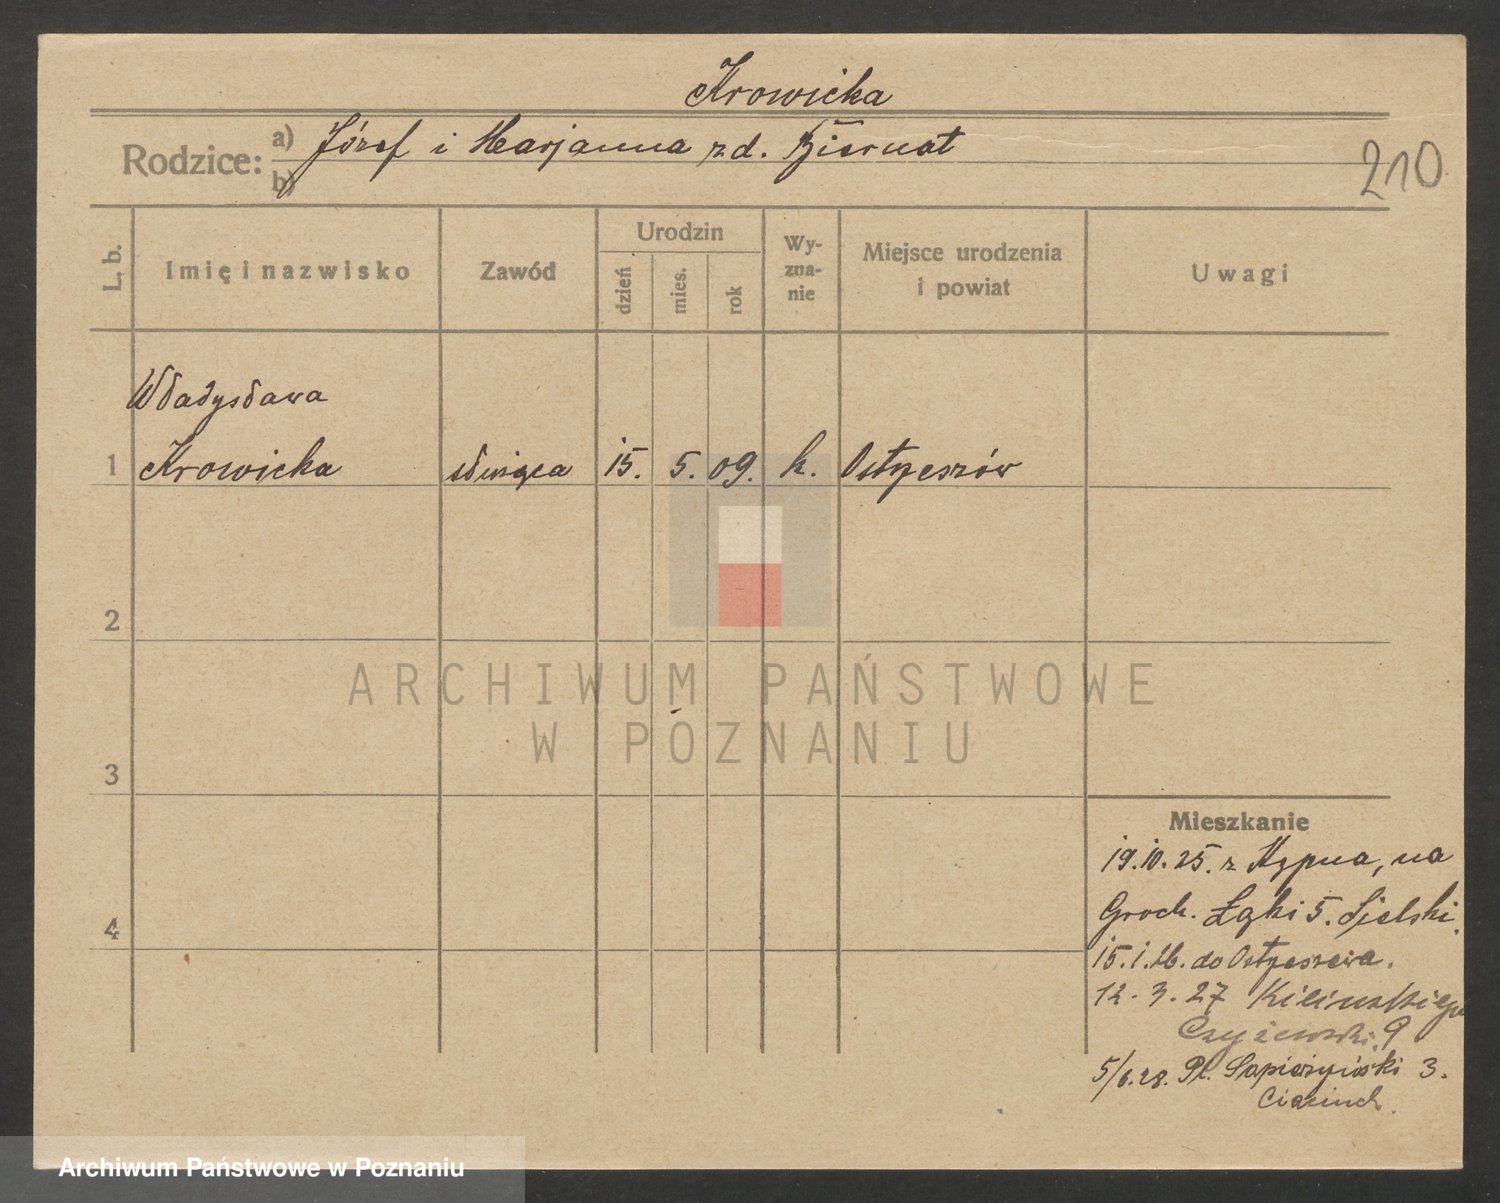 Krowicka
Rodzice: a) Józef i Marjanna z d. Biernat
b)
210
L. b. Imię i nazwisko Zawód Urodzin dzień mies. rok Wy-zna-nie Miejsce urodzenia i powiat Uwagi
Władysława
1 Krowicka służąca 15. 5. 09. k. Ostrzeszów
2
3
4
Mieszkanie
19.10.25. z Kępna, na
Groch. Łąki 5. Sielski.
15.1.26. do Ostrzeszowa.
12.3.27 Kilińskiego
Czyżewski. 9
5/6.28. Pl. Sapieżyński 3.
ARCHIWUM PAŃSTWOWE
W POZNANIU
Archiwum Państwowe w Poznaniu